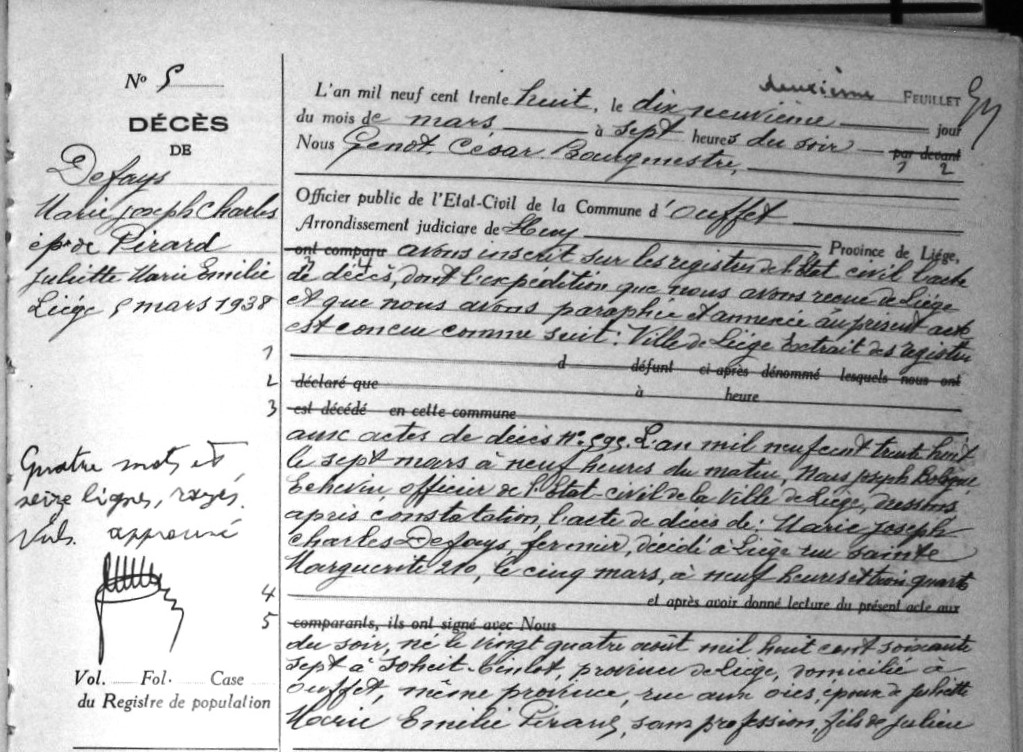 N° 5
DÉCÈS
DE
Defays
Marie Joseph Charles
ép. de Pirard
Juliette Marie Emilie
Liége 5 mars 1938
1
2
3
Quatre mots et
seize lignes, rayés.
approuvé
4
5
Vol. Fol. Case
du Registre de population
deuxième FEUILLET
L'an mil neuf cent trente huit, le dix neuvième jour
du mois de mars à sept heures du soir par devant
1 2
Nous Genot. César. Bourgmestre,
Officier public de l'Etat-Civil de la Commune d'Ouffet
Arrondissement judiciaire de Huy Province de Liége,
ont comparu avons inscrit sur les registres de l'Etat civil l'acte
de décès, dont l'expédition que nous avons reçue de Liège
et que nous avons paraphée et annexée au présent acte
est conçue comme suit: Ville de Liège Extrait des registres
d défunt ci-après dénommé lesquels nous ont
déclaré que à heure
est décédé en cette commune
aux actes de décès N° 595. L'an mil neuf cent trente huit
le sept mars à neuf heures du matin, Nous, Joseph Bologne
Echevin, officier de l'Etat-civil de la Ville de Liège, dressons
après constatation, l'acte de décès de: Marie Joseph
Charles Defays, fermier, décédé à Liège rue Sainte
Marguerite 210, le cinq mars, à neuf heures et trois quarts
et après avoir donné lecture du présent acte aux
comparants, ils ont signé avec Nous
du soir, né le vingt quatre août mil huit cent soixante
sept à Soheit-Tinlot, province de Liège, domicilié à
Ouffet, même province, rue aux oies, époux de Juliette
Marie Emilie Pirard, sans profession, fils de Julien